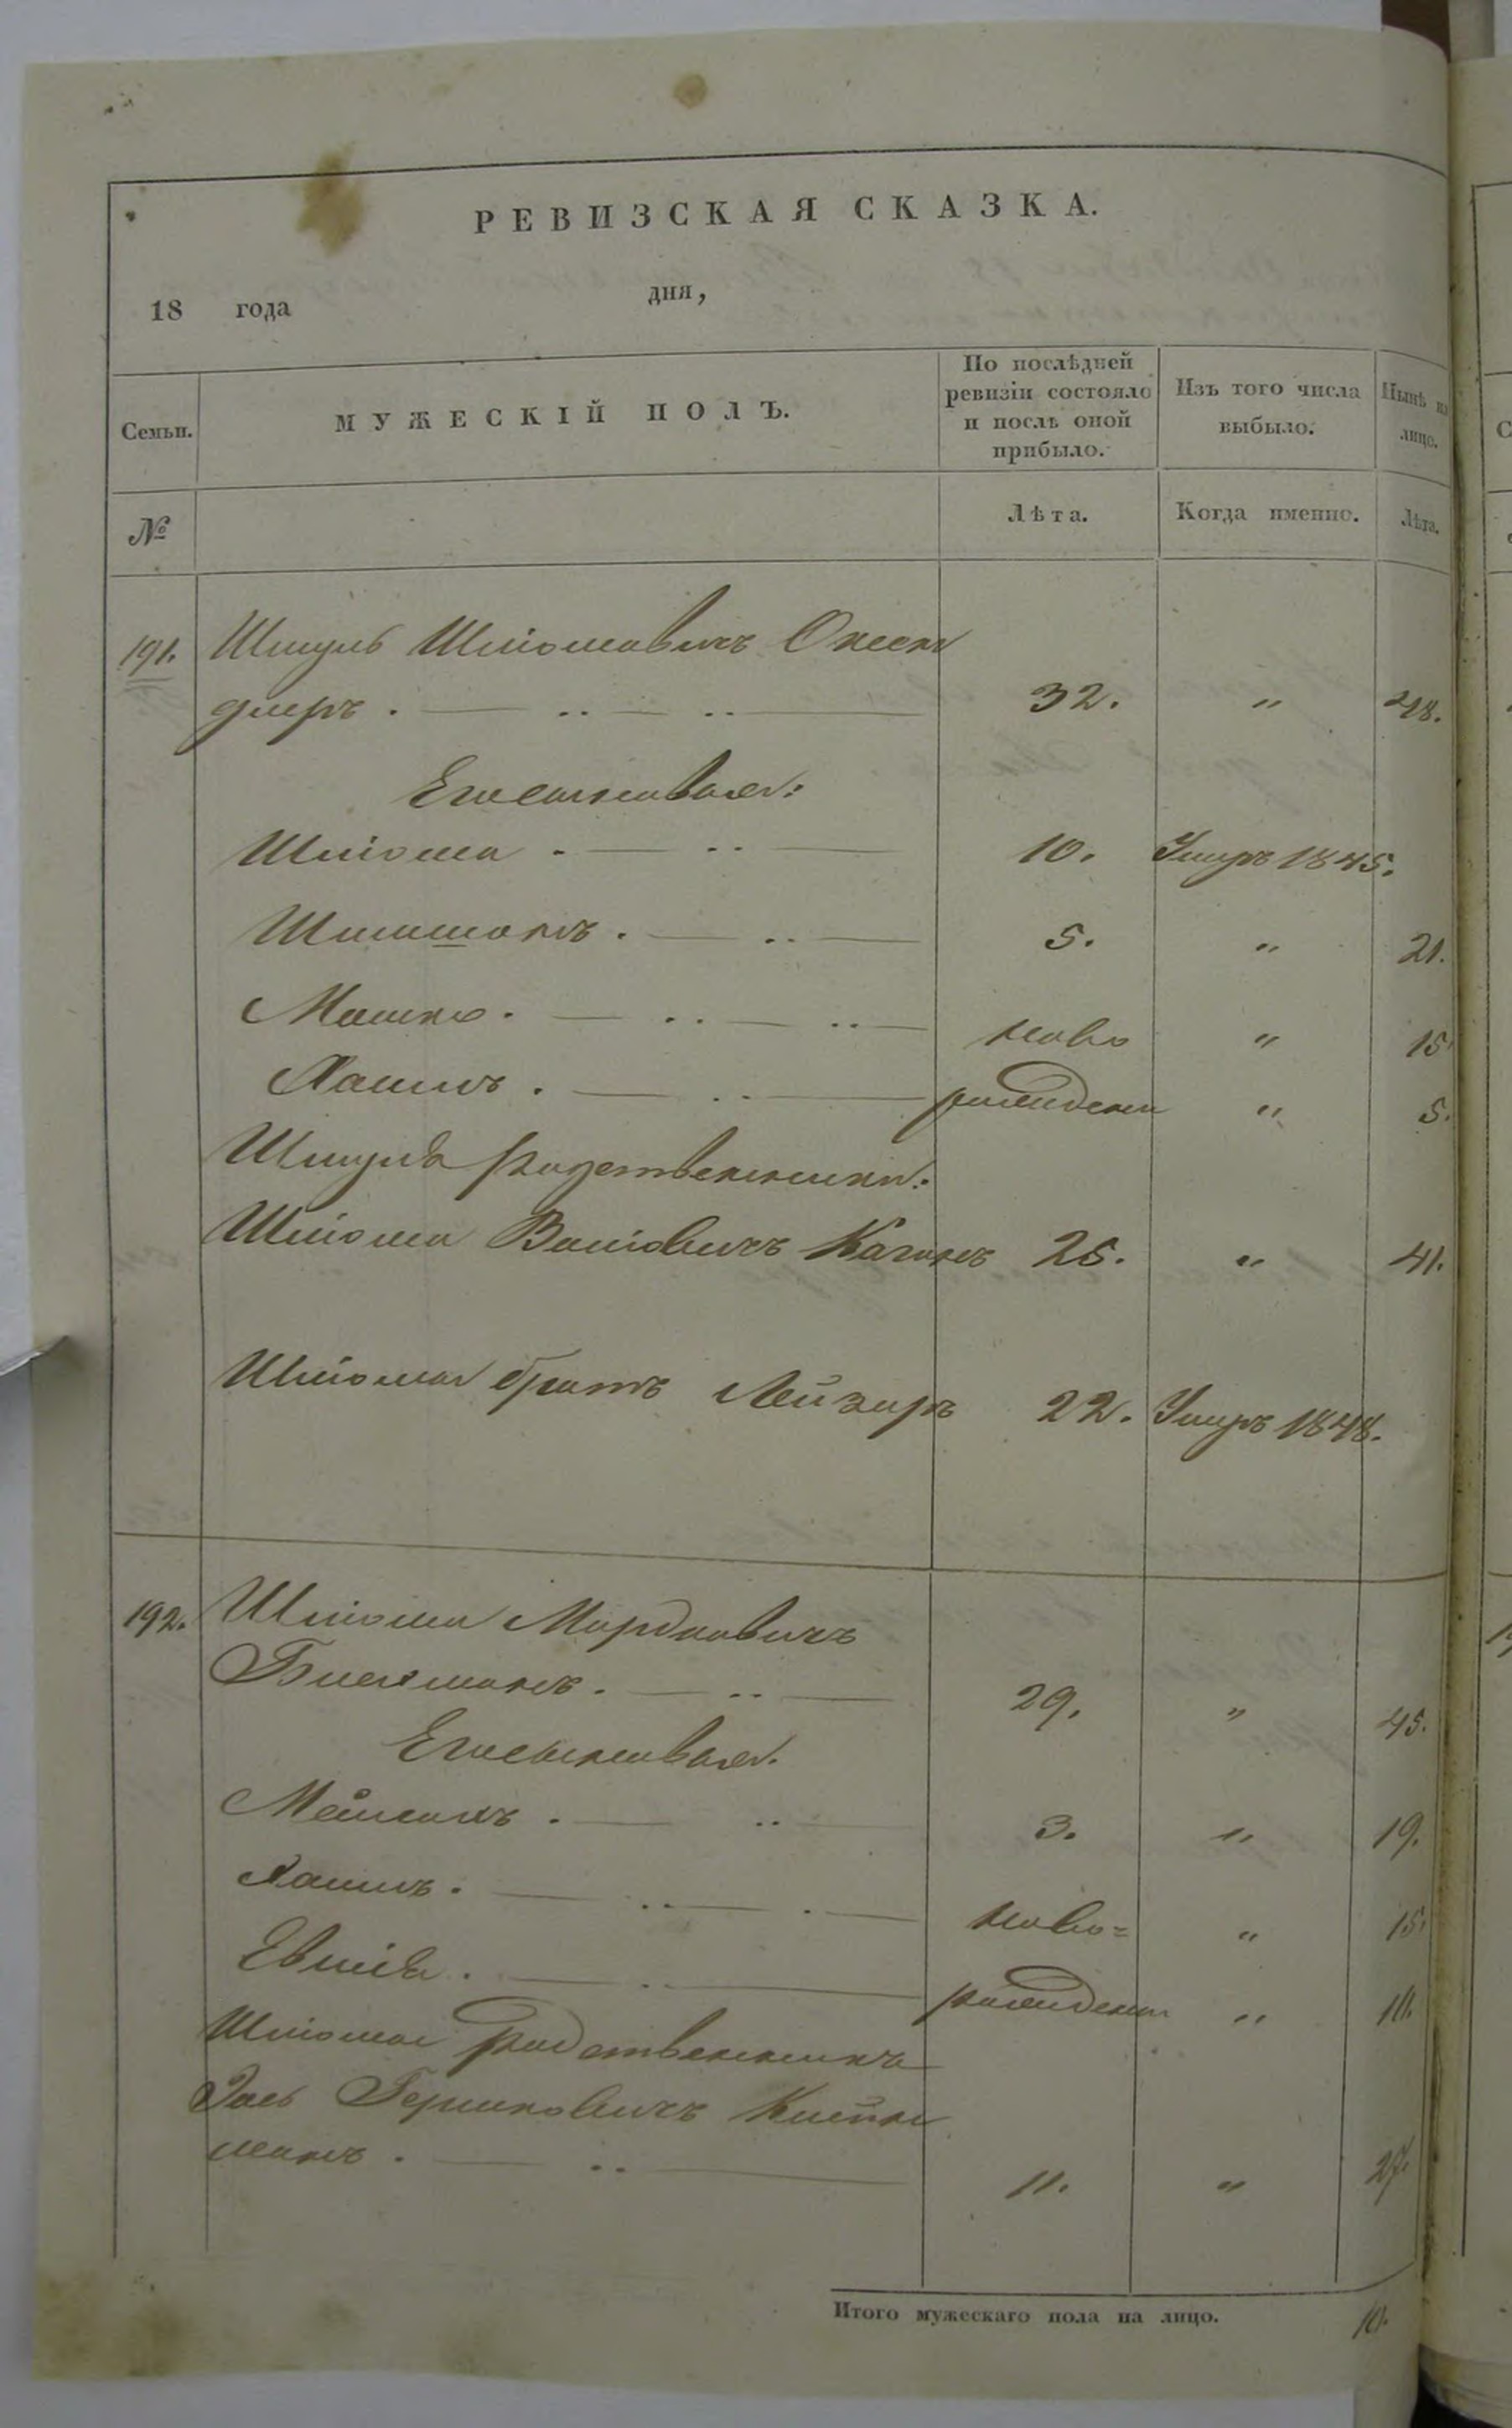 РЕВИЗСКАЯ СКАЗКА.
18 года дня,
Семьи.
МУЖЕСКІЙ ПОЛЪ.
По послѣдней ревизіи состояло и послѣ оной прибыло.
Изъ того числа выбыло.
Нынѣ на лицо.
№
Лѣта.
Когда именно.
Лѣта.
191. Шмуль Шліомовичъ
32. " 48.
Его сыновья:
Шліома 10. Умеръ 1845.
5. " 21.
Мошко ново " 15
Хаимъ рожденъ " 5.
Шмуля родственники:
Шліома Каганъ 25. " 41.
Шліома братъ Лейзоръ 22. Умеръ 1848.
192. Шліома Мордковичъ
29. " 45.
Его сыновья.
3. " 19.
Хаимъ. ново= " 15.
рожденъ " 10.
Шліома родственникъ
Гершковичъ
манъ. 11. " 27.
Итого мужескаго пола на лицо. 10.